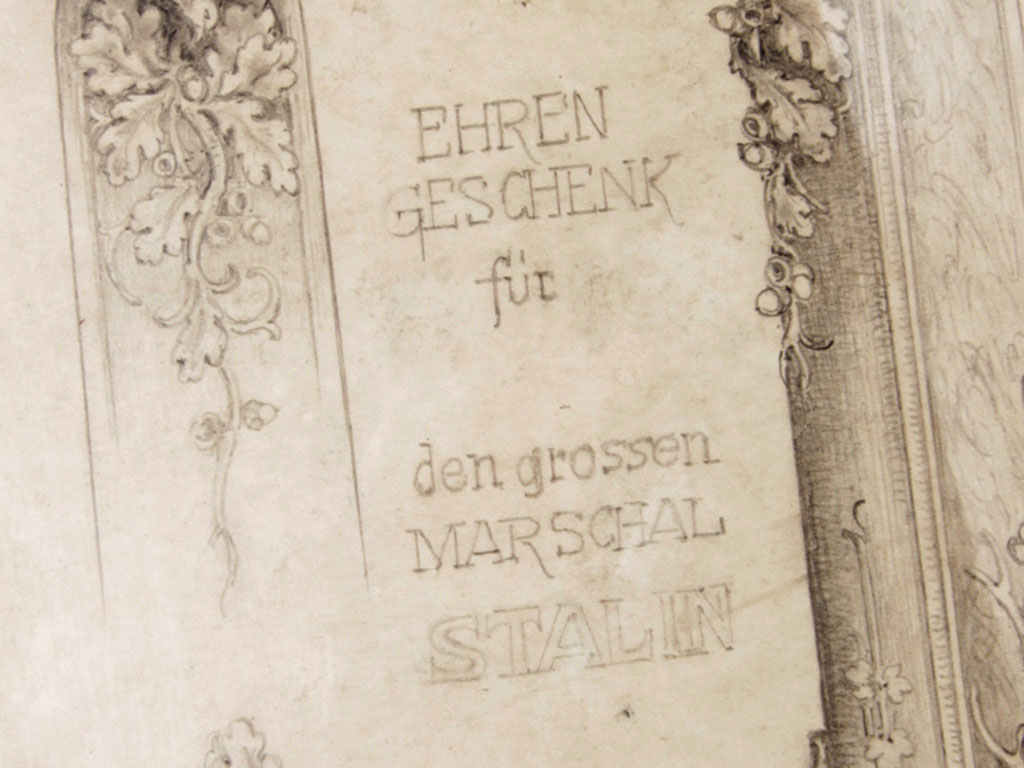 EHREN
GESCHENK
für
den grossen
MARSCHAL
STALIN